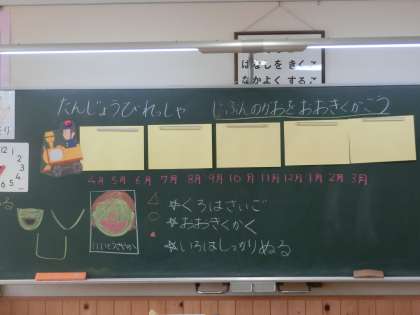 はなしをきくこ
なかよくするこ
たんじょうびれっしゃ　じぶんのかおをおおきくかこう2
12
1
2
3
4
5
6
4月 5月 6月 7月 8月 9月 10月 11月 12月 1月 2月 3月
☆くろはさいご
☆おおきくかく
☆いろはしっかりぬる